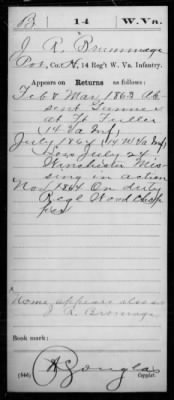 B | 14 | W. Va.
J. R. Brummage
Pvt, Co. H, 14 Reg't W. Va. Infantry.
Appears on Returns as follows:
Feb & Mar 1863 Ab-
sent Gunner
at Ft Fuller
(14 Va Inf)
July 1864 (14 W Va Inf)
July 24
Winchester Mis-
sing in action
Nov 1864 On duty
Regl Wood Chop-
per
Name appears also as
J. R. Bromage
Book mark:
(646)
Copyist.